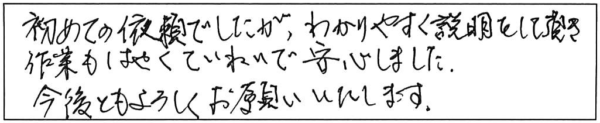 初めての依頼でしたが、わかりやすく説明をして頂き
作業もはやくていねいで安心しました.
今後ともよろしくお願いいたします.